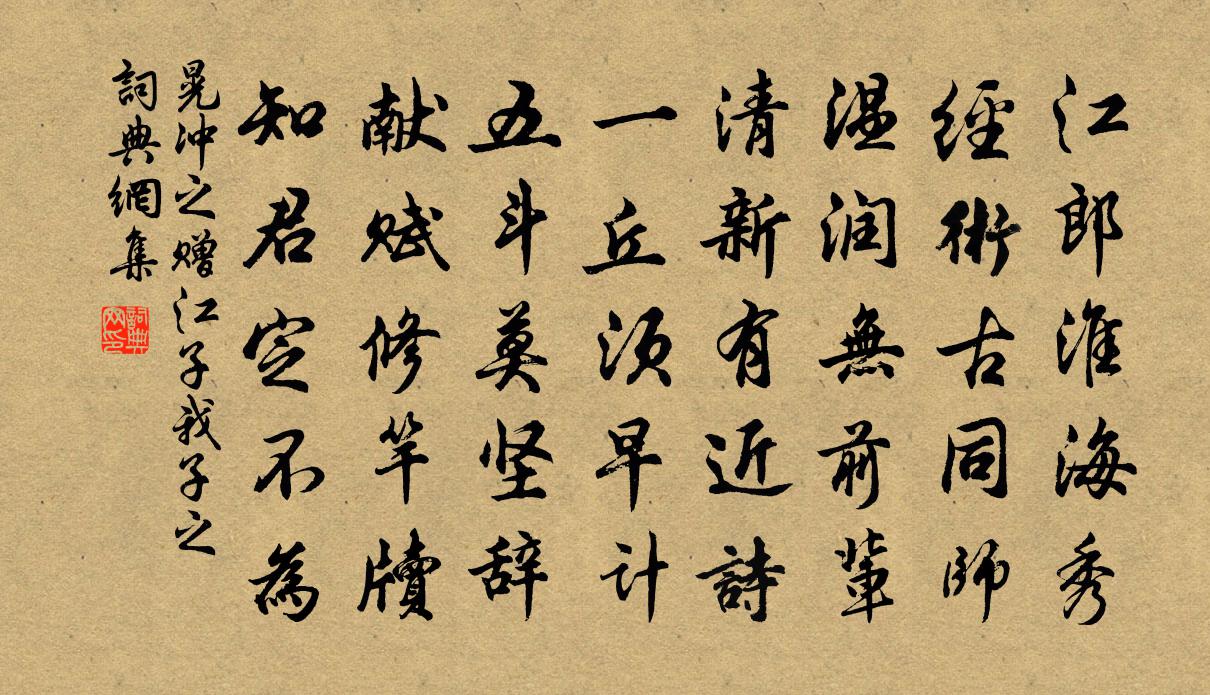 江郎淮海秀
經術古同師
温润無前輩
清新有近詩
一丘须早计
五斗莫坚辞
献赋修竿牘
知君定不為
晃冲之赠江子我子之
詞典網集
詞典网印